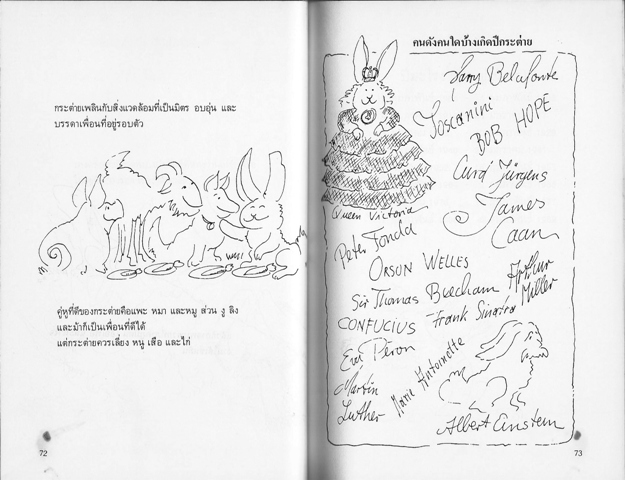 กระต่ายเพลินกับสิ่งแวดล้อมที่เป็นมิตร อบอุ่น และ
บรรดาเพื่อนที่อยู่รอบตัว
คู่หูที่ดีของกระต่ายคือแพะ หมา และหมู ส่วน งู ลิง
และม้าก็เป็นเพื่อนที่ดีได้
แต่กระต่ายควรเลี่ยง หนู เสือ และไก่
72
คนดังคนใดบ้างเกิดปีกระต่าย
Harry Belafonte
Toscanini
BOB HOPE
Curd Jürgens
Queen Victoria
James
Caan
Peter Fonda
ORSON WELLES
Sir Thomas Beecham
Arthur
Miller
CONFUCIUS
Frank Sinatra
Eva Peron
Marie Antoinette
Martin
Luther
Albert Einstein
73